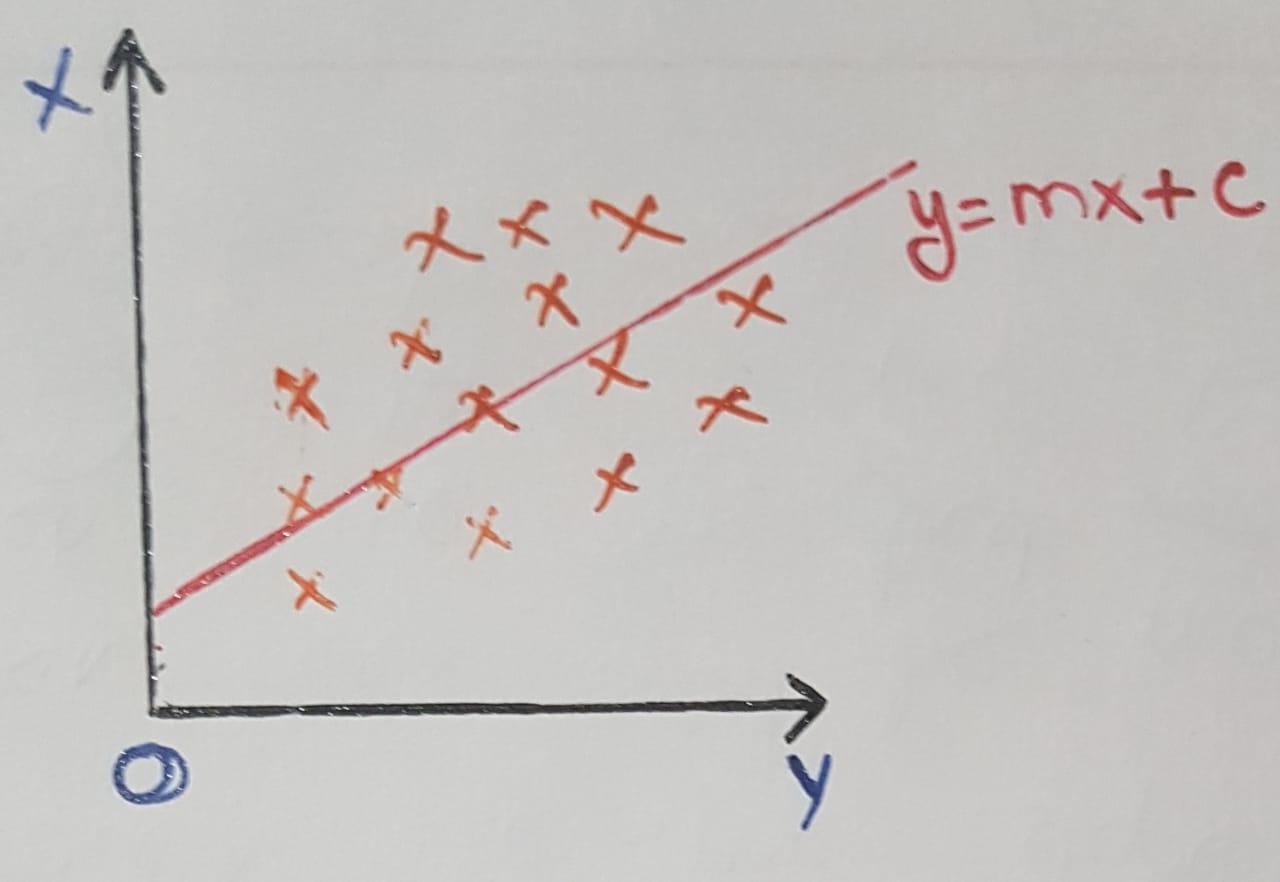 X
y=mx+c
O
y